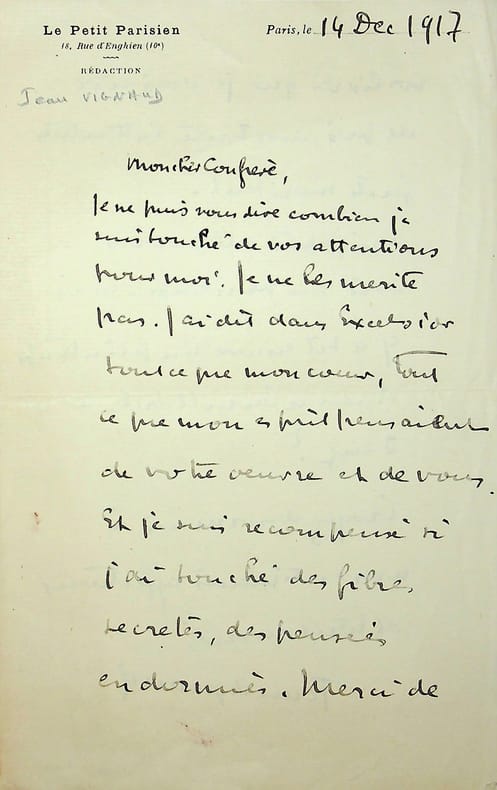 Le Petit Parisien
18, Rue d'Enghien (10e)
RÉDACTION
Paris, le 14 Dec 1917
Jean VIGNAUD
Mon cher Confrère,
Je ne puis vous dire combien je
suis touché de vos attentions
pour moi. Je ne les merite
pas. J'ai dit dans Excelsior
tout ce que mon coeur, tout
ce que mon esprit pensaient
de votre oeuvre et de vous.
Et je suis recompensé si
j'ai touché des fibres
secretes, des pensées
endormies. Merci de